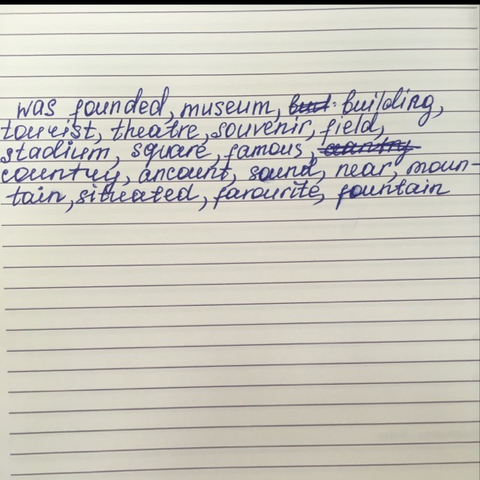 was founded, museum, building,
tourist, theatre, souvenir, field,
stadium, square, famous,
country, ancount, sound, near, moun-
tain, situated, favourite, fountain